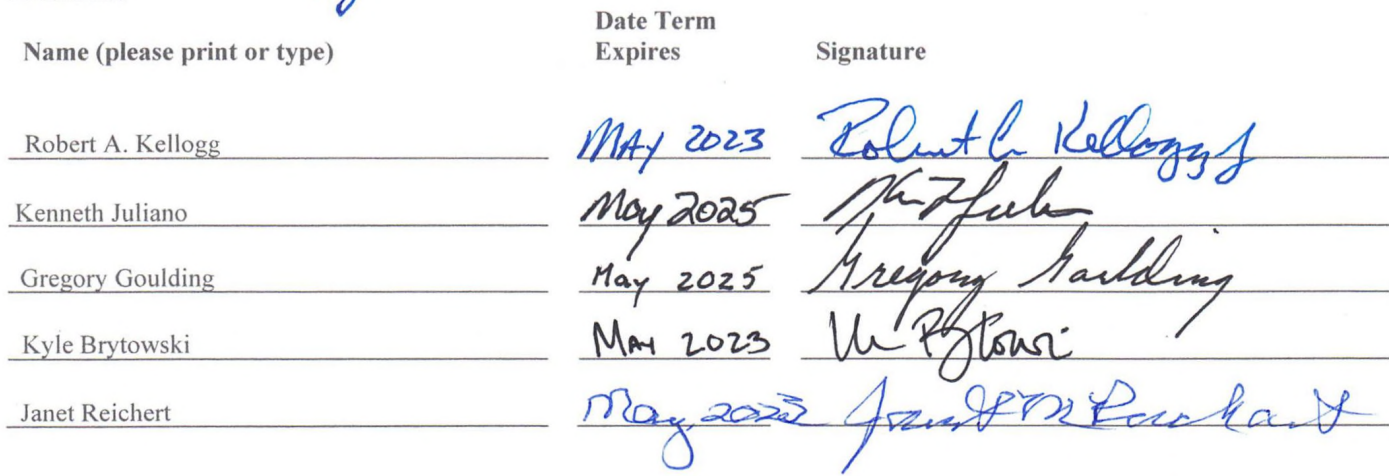 Date Term
Name (please print or type) Expires Signature
Robert A. Kellogg MAY 2023 Robert A Kellogg Jr
Kenneth Juliano May 2025
Gregory Goulding May 2025 Gregory Goulding
Kyle Brytowski MAY 2023
Janet Reichert May, 2023 Janet M Reichert